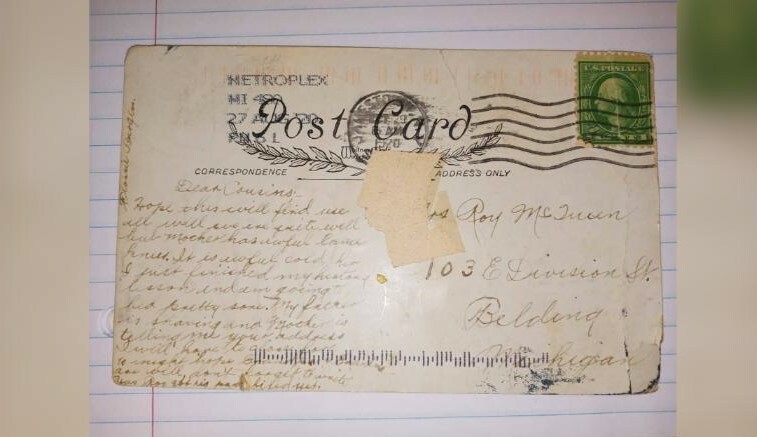 METROPLEX
MI 480
27 AUG 20
PM 5 L
U.S. POSTAGE
Post Card
CORRESPONDENCE
ADDRESS ONLY
Dear Cousins,
Hope this will find use
all well we are quite well
but mother has awful lame
knees. It is awful cold.
I just finished my history
lesson and am going to
bed pretty soon. My father
is shaving and Mother is
telling me your address
I will have to
Hope
you will. dont forget to write
Roy McQueen
103 E Division St.
Belding
Michigan